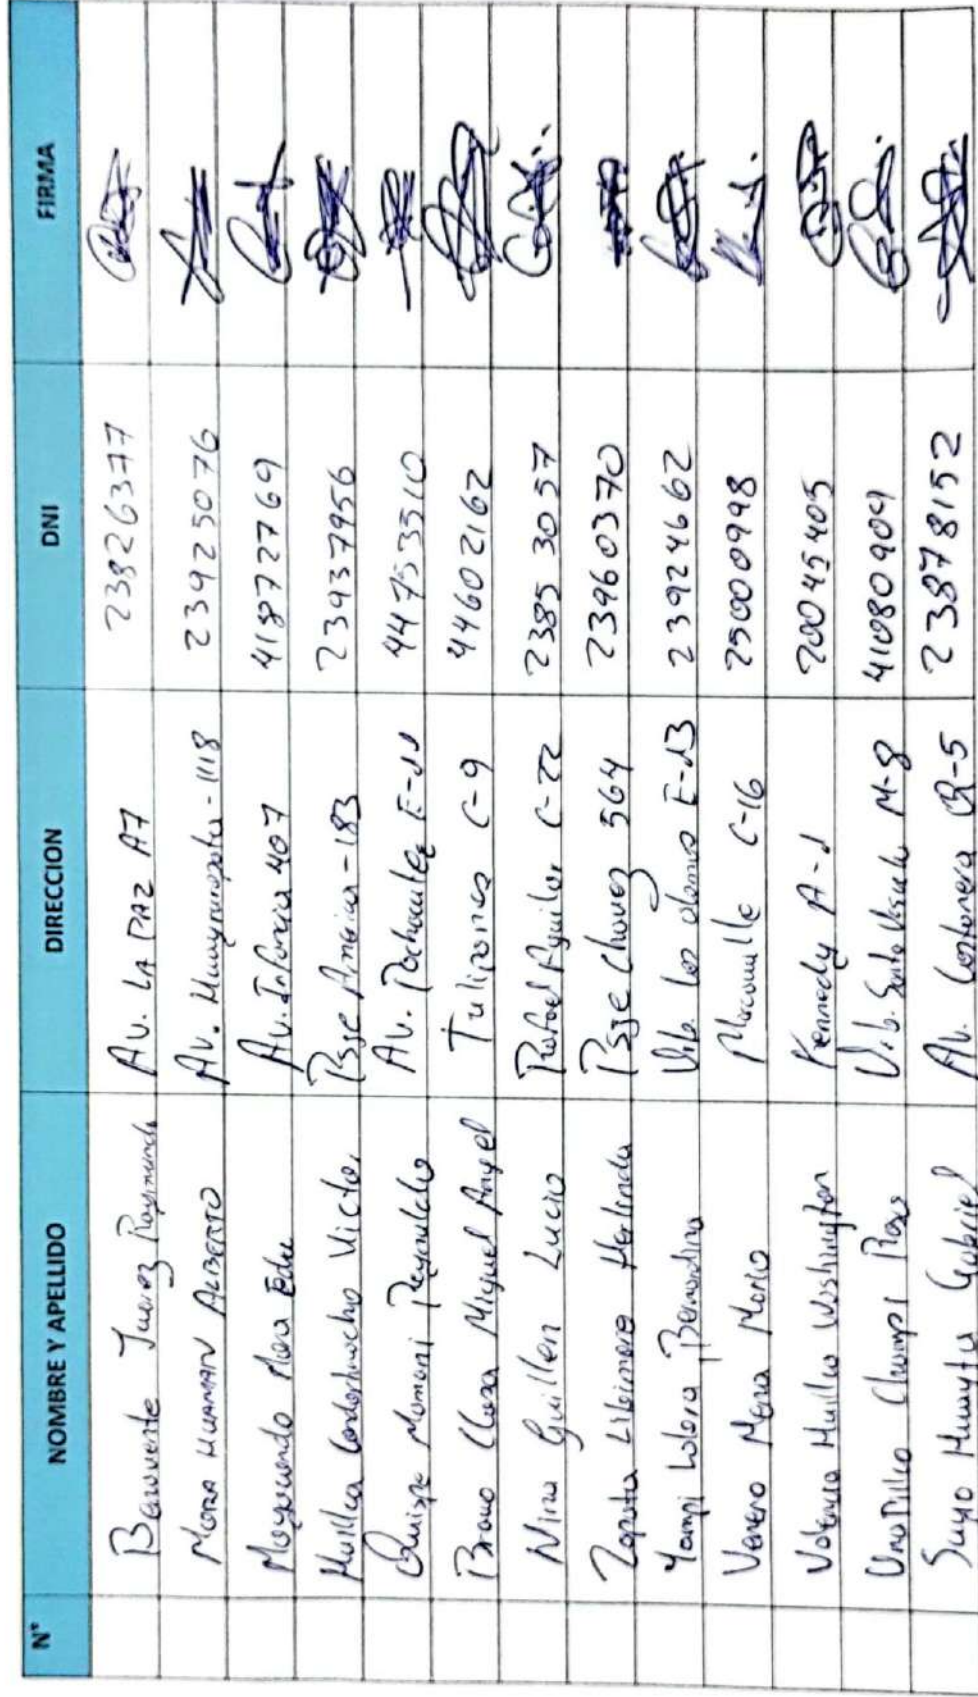 N° NOMBRE Y APELLIDO DIRECCION DNI FIRMA
Benavente Juarez Raymundo Av. LA PAZ A7 23826377
MORA HUAMAN ALBERTO Av. 1118 23925076
Moscoso Mora Edu Av. Infancia 407 41872769
Huillca Victor Psje America - 183 23937956
Quispe Mamani Reynaldo Av. Pachacutec E-11 44753510
Bravo Ccasa Miguel Angel Tulipanes C-9 44602162
Nina Guillen Lucio Rafael Aguilar C-22 23853057
Zapata Herlinda Psje Chavez 564 23960370
Yampi Bernardina Urb. Los alamos E-13 23924662
Venero Mena Mario C-16 25000998
Valencia Huillca Washington Kennedy A-1 20045405
Champi Rosa Urb. M-8 41080904
Suyo Gabriel Av. Q-5 23878152